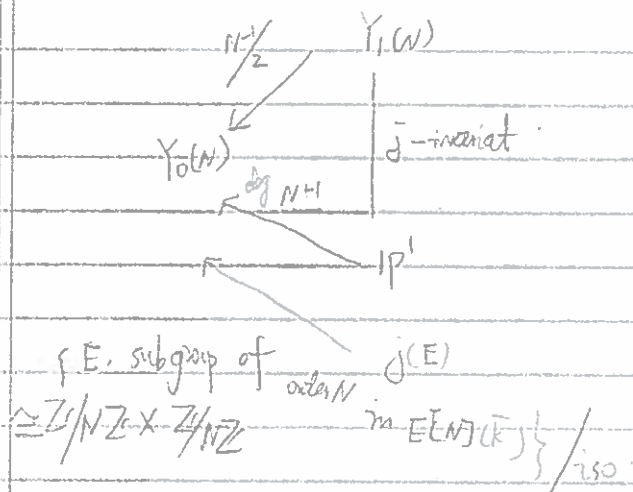 N-1/2 Y₁(N)
Y₀(N) j-invariant
deg N+1
IP¹
{E, subgroup of order N j(E)
≃ Z/NZ × Z/NZ in E[N](k̄)}/iso